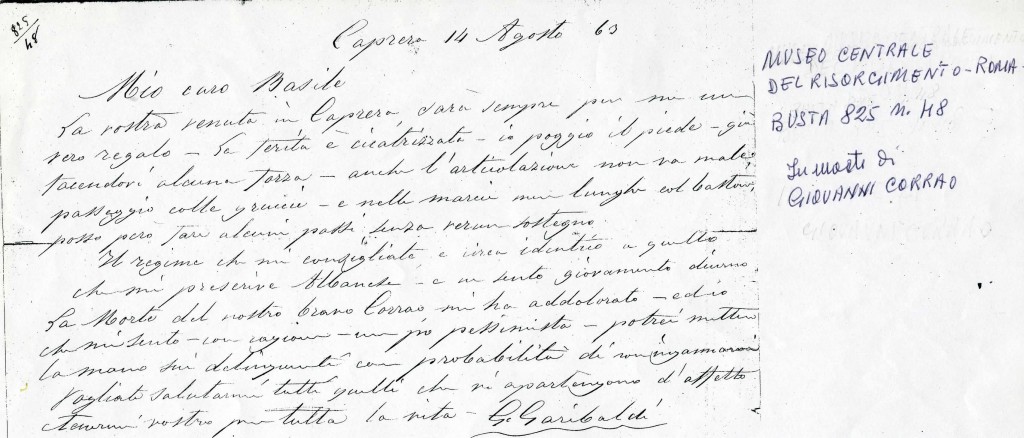 825/48
Caprera 14 Agosto 63
Mio caro Basile
La vostra venuta in Caprera, sarà sempre per me un
vero regalo – La ferita è cicatrizzata – io poggio il piede – già
facendovi alcuna forza – anche l'articolazione non va male:
passeggio colle gruccie – e nelle marcie men lunghe col bastone,
posso però fare alcuni passi senza verun sostegno.
Il regime che mi consigliate è circa identico a quello
che mi prescrive Albanese – e ne sento giovamento diurno.
La Morte del nostro bravo Corrao mi ha addolorato – ed io
che mi sento – con ragione – un pò pessimista – potrei mettere
la mano sui delinquenti con probabilità di non ingannarmi
Vogliate salutarmi tutti quelli che vi apartengono d'affetto
e tenermi vostro per tutta la vita – G. Garibaldi
MUSEO CENTRALE
DEL RISORGIMENTO – ROMA –
BUSTA 825 n. 48
In morte di
GIOVANNI CORRAO